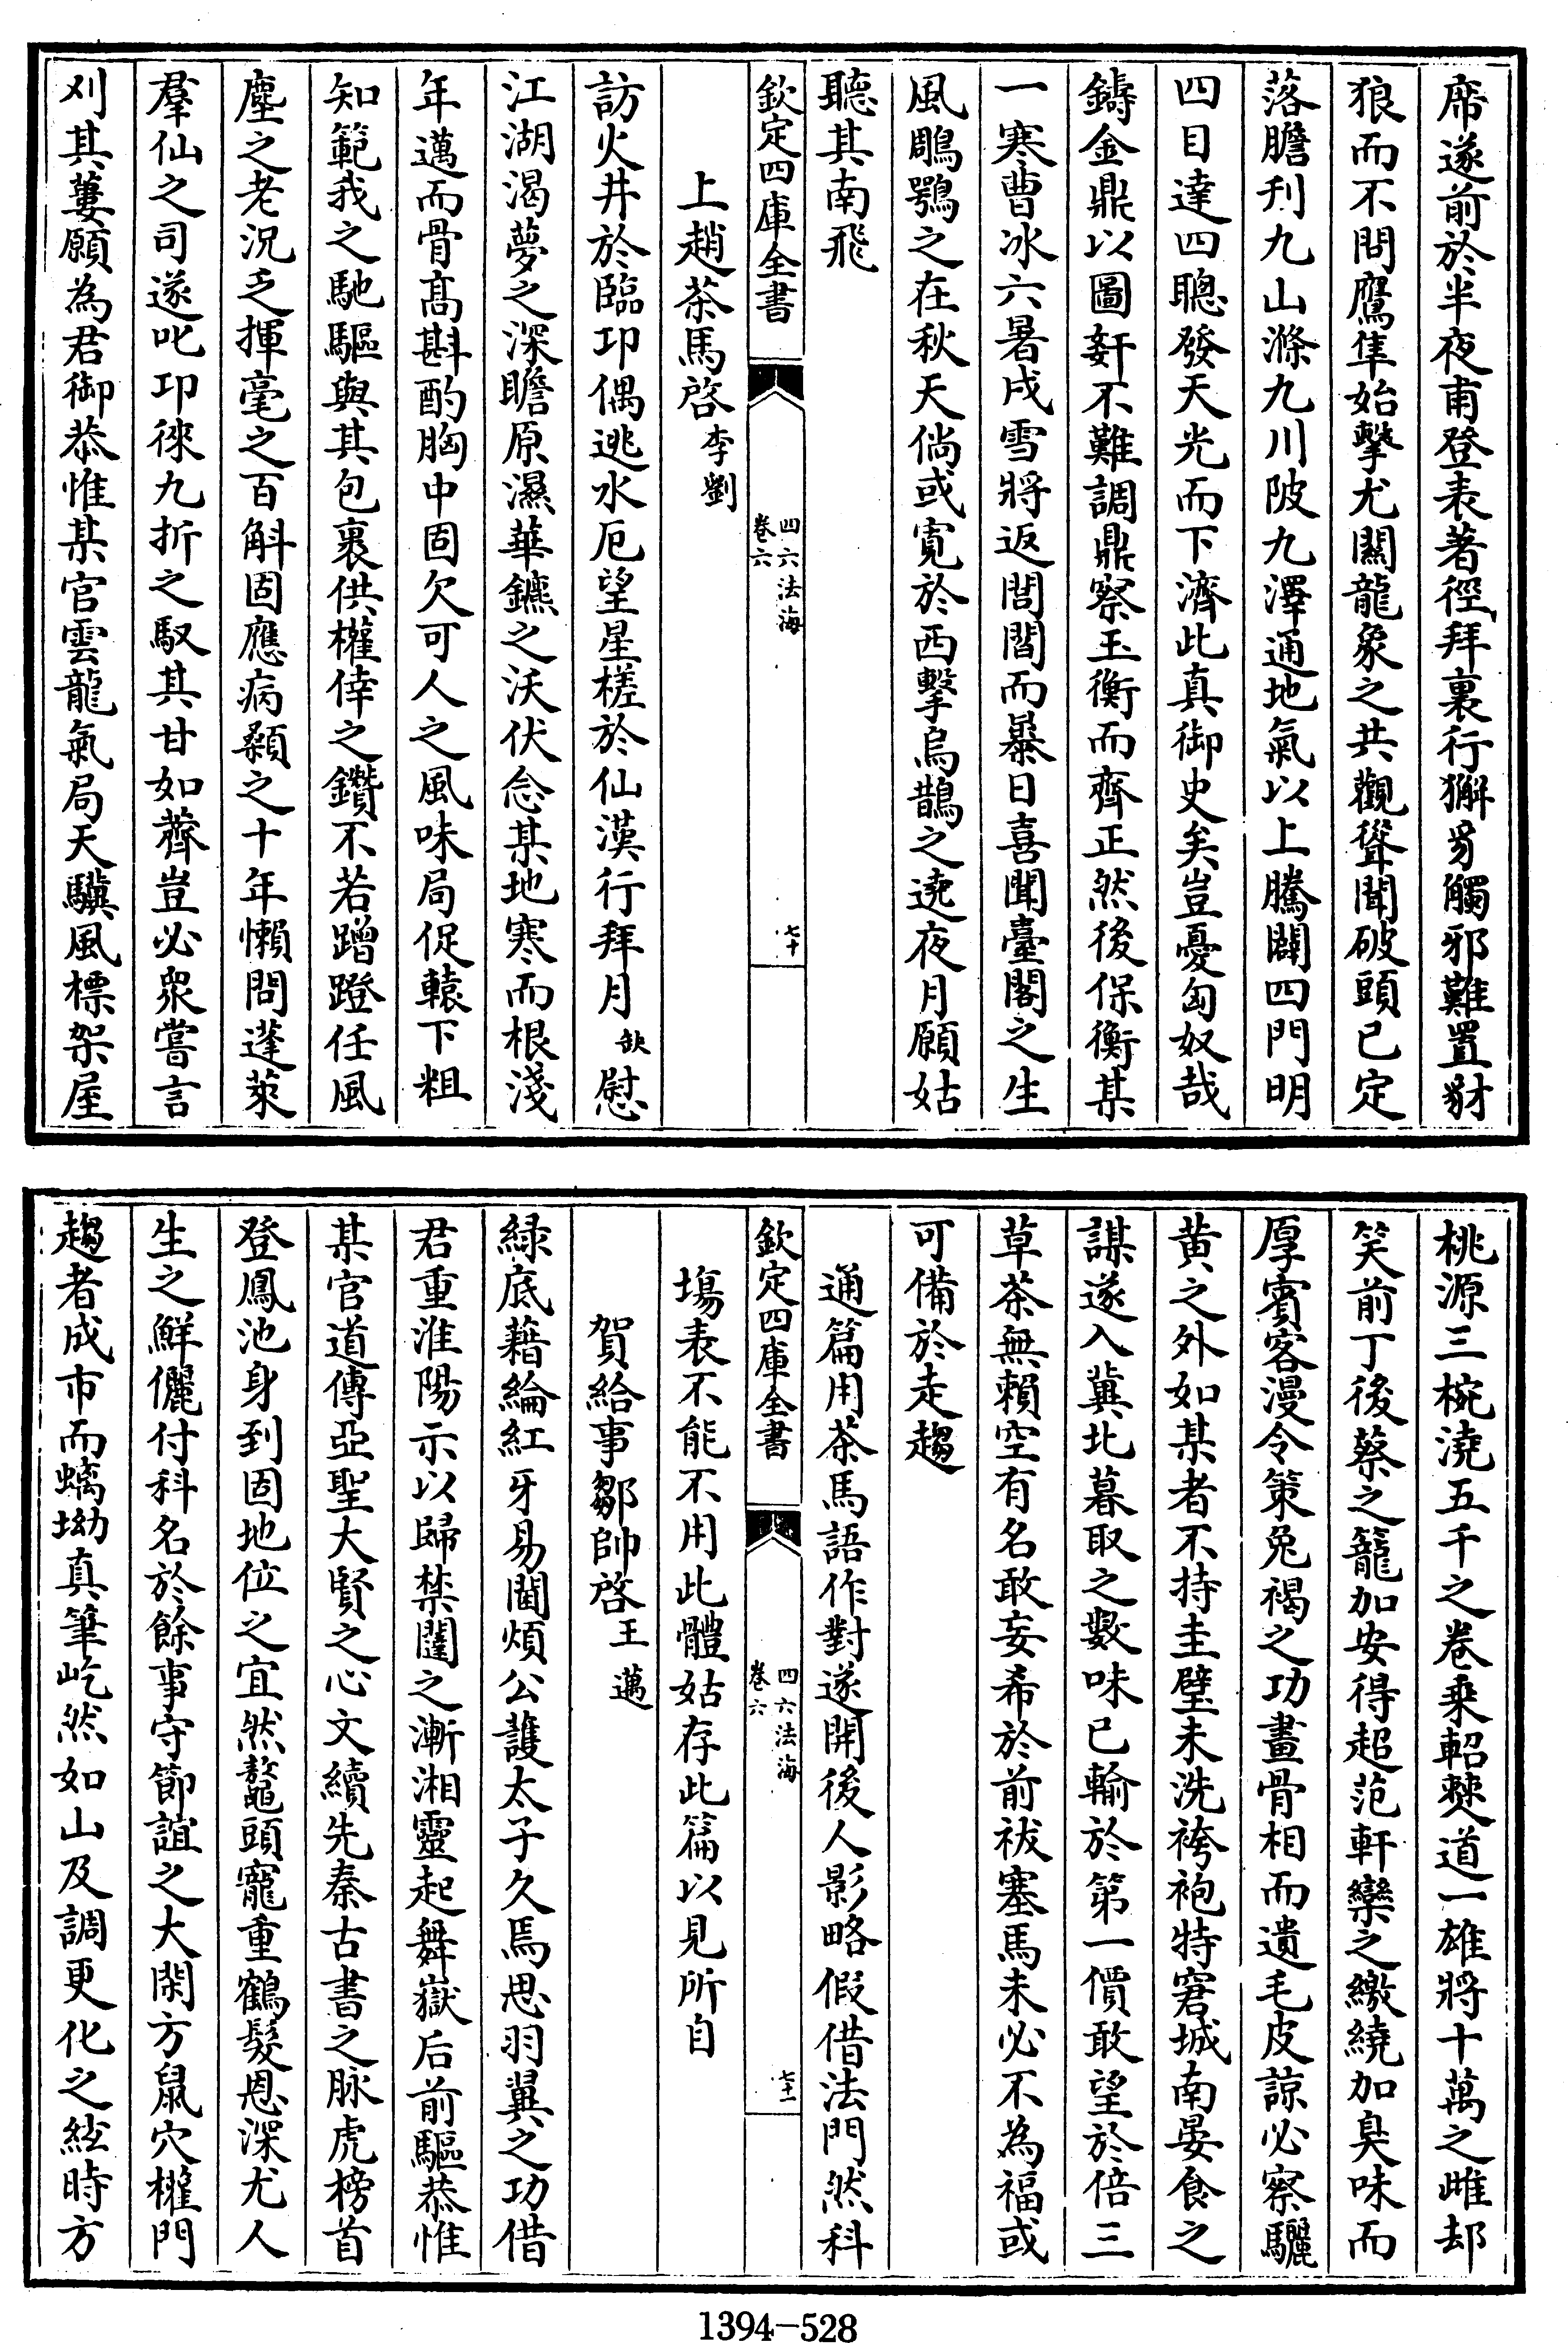 席遂前於半夜甫登表著徑拜裏行獬豸觸邪難置豺
狼而不問鷹隼始擊尤闗龍象之共觀聳聞破頭已定
落膽刋九山滌九川陂九澤通地氣以上騰闢四門明
四目達四聰發天光而下濟此真御史矣豈憂匈奴哉
鑄金鼎以圖姧不難調鼎察玉衡而齊正然後保衡某
一寒曹冰六暑戍雪將返閭閻而㬥日喜聞臺閣之生
風鵰鶚之在秋天倘或寛於西擊烏鵲之遶夜月願姑
聽其南飛
欽定四庫全書
四六法海
卷六
七十
上趙茶馬啓李劉
訪火井於臨卭偶逃水厄望星槎於仙漢行拜月缺慰
江湖渴夢之深瞻原濕華鑣之沃伏念某地寒而根淺
年邁而骨髙斟酌胸中固欠可人之風味局促轅下粗
知範我之馳驅與其包裹供權倖之鑽不若蹭蹬任風
塵之老況乏揮毫之百斛固應病顙之十年懶問蓬萊
羣仙之司遂叱卭徠九折之馭其甘如薺豈必衆嘗言
刈其蔞願為君御恭惟某官雲龍氣局天驥風標架屋
桃源三椀澆五千之卷乗軺僰道一雄將十萬之雌却
笑前丁後蔡之籠加安得超范軒欒之繳繞加臭味而
厚賓客漫令策兔褐之功畫骨相而遺毛皮諒必察驪
黄之外如某者不持圭璧未洗袴袍特窘城南晏食之
謀遂入冀北暮取之數味已輸於第一價敢望於倍三
草茶無賴空有名敢妄希於前祓塞馬未必不為福或
可備於走趨
通篇用茶馬語作對遂開後人影略假借法門然科
欽定四庫全書
四六法海
卷六
七十一
塲表不能不用此體姑存此篇以見所自
賀給事鄒帥啓王邁
緑底藉綸紅牙易閫煩公護太子久焉思羽翼之功借
君重淮陽示以歸禁闥之漸湘靈起舞嶽后前驅恭惟
某官道傳亞聖大賢之心文續先秦古書之脉虎榜首
登鳳池身到固地位之宜然鼇頭寵重鶴髮恩深尤人
生之鮮儷付科名於餘事守節誼之大閑方鼠穴權門
趨者成市而螭坳真筆屹然如山及調更化之絃時方
1394-528